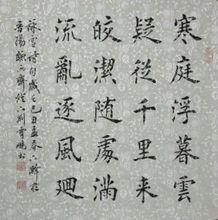 寒庭浮暮雲
疑從千里来
皎潔隨處滿
流亂逐風廻
詠雪詩句歲己丑孟春
晉陽